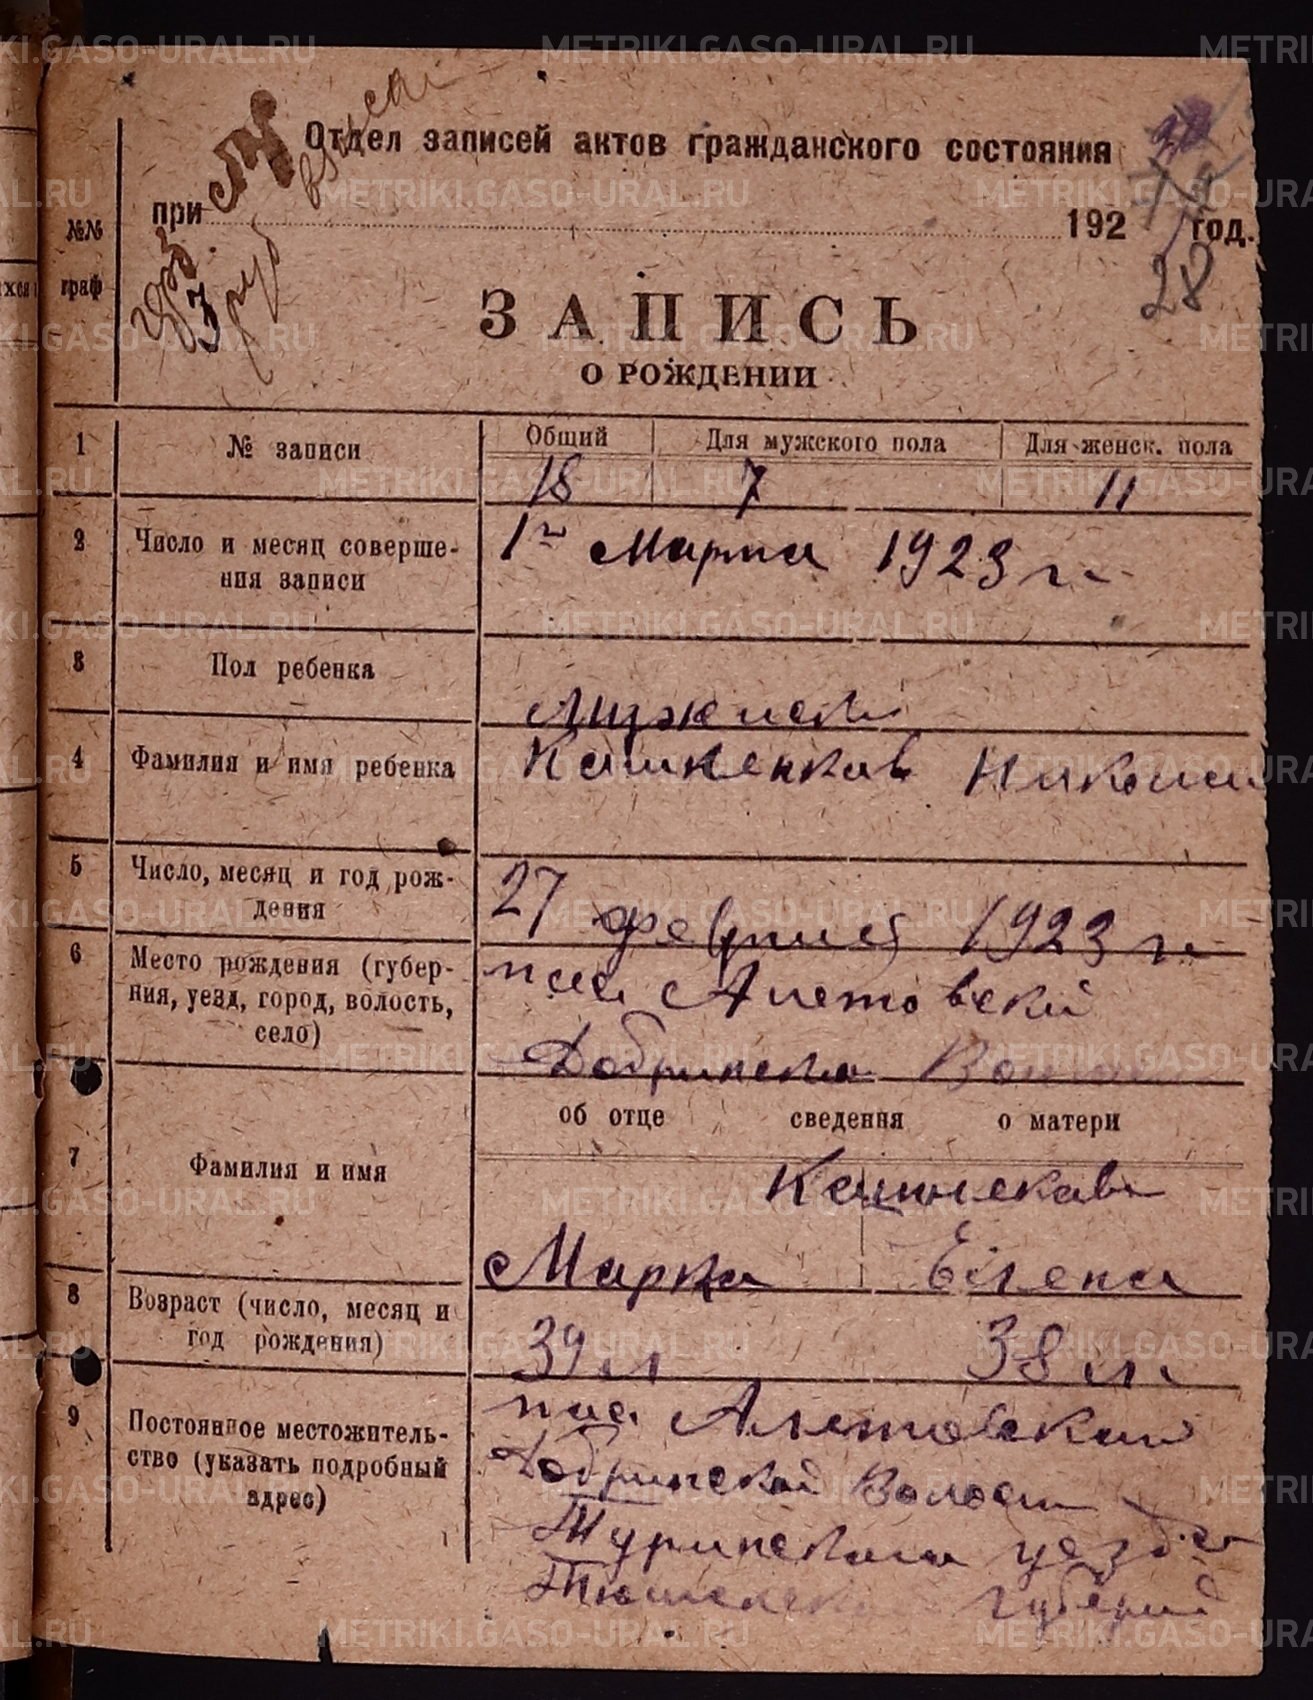 Отдел записей актов гражданского состояния
при 192 год.
28
№№ граф
ЗАПИСЬ
О РОЖДЕНИИ
1 № записи Общий Для мужского пола Для женск. пола
18 7 11
2 Число и месяц соверше-
ния записи
1го Марта 1923 г.
3 Пол ребенка
Мужской
4 Фамилия и имя ребенка
Николай
5 Число, месяц и год рож-
дения
27 февраля 1923 г.
6 Место рождения (губер-
ния, уезд, город, волость,
село)
пос
Добринская
об отце сведения о матери
7 Фамилия и имя
Марка Елена
8 Возраст (число, месяц и
год рождения)
39 л 38 л.
9 Постоянное местожитель-
ство (указать подробный
адрес)
пос.
Добринской Волости
Туринскаго уезда
губерний
METRIKI.GASO-URAL.RU